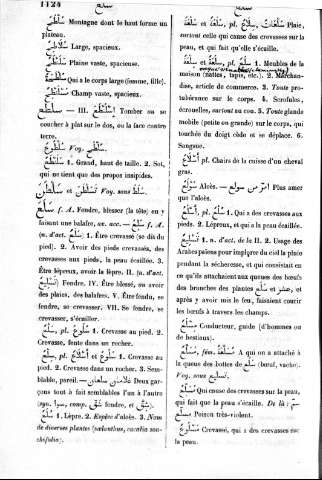 1124
سلع
سَلَنْطَحٌ Montagne dont le haut forme un
plateau.
سُلَاطِحٌ Large, spacieux.
Plaine vaste, spacieuse.
Qui a le corps large (femme, fille).
Champ vaste, spacieux.
سلطع — III. اِسْلَنْطَعَ Tomber ou se
coucher à plat sur le dos, ou la face contre
terre.
سُلْطُوعٌ Voy. سلطح.
1. Grand, haut de taille. 2. Sot,
qui ne tient que des propos insipides.
تَسَلْطَنَ et سُلْطَانٌ Voy. sous سلط.
سَلَعَ f. A. Fendre, blesser (la tête) en y
faisant une balafre, av. acc. — سَلِعَ f. A.
(n. d'act. سَلَعٌ) 1. Être crevassé (se dit du
pied). 2. Avoir des pieds crevassés, des
crevasses aux pieds, la peau écaillée. 3.
Être lépreux, avoir la lèpre. II. (n. d'act.
تَسْلِيعٌ) Fendre. IV. Être blessé, ou avoir
des plaies, des balafres. V. Être fendu, se
fendre, se crevasser. VII. Se fendre, se
crevasser, s'écailler.
سَلْعٌ, pl. سُلُوعٌ 1. Crevasse au pied. 2.
Crevasse, fente dans un rocher.
سِلْعٌ, pl. أَسْلَاعٌ et سُلُوعٌ 1. Crevasse au
pied. 2. Crevasse dans un rocher. 3. Sem-
blable, pareil. — غلامان سلعان Deux gar-
çons tout à fait semblables l'un à l'autre
(syn. سِيٌّ, comp. شَقَّ, fendre, et شِقٌّ).
سَلَعٌ 1. Lèpre. 2. Espèce d'aloès. 3. Nom
de diverses plantes
سَلْعَةٌ et سِلْعَةٌ, pl. سَلَعَاتٌ, سِلَاعٌ Plaie,
surtout celle qui cause des crevasses sur la
peau, et qui fait qu'elle s'écaille.
سِلْعَةٌ, pl. سِلَعٌ 1. Meubles de la
maison (nattes, tapis, etc.). 2. Marchan-
dise, article de commerce. 3. Toute pro-
tubérance sur le corps. 4. Scrofules,
écrouelles, surtout au cou. 5. Toute glande
mobile (petite ou grande) sur le corps, qui
touchée du doigt cède et se déplace. 6.
Sangsue.
أَسْلَاعٌ pl. Chairs de la cuisse d'un cheval
gras.
سَوْلَعٌ Aloès. — امر من سولع Plus amer
que l'aloès.
أَسْلَعُ, pl. سُلْعٌ 1. Qui a des crevasses aux
pieds. 2. Lépreux, et qui a la peau écaillée.
تَسْلِيعٌ 1. n. d'act. de la II. 2. Usage des
Arabes païens pour implorer du ciel la pluie
pendant la sécheresse, et qui consistait en
ce qu'ils attachaient aux queues des bœufs
des branches des plantes سلع et عشر, et
après y avoir mis le feu, faisaient courir
les bœufs à travers les champs.
مِسْلَعٌ Conducteur, guide (d'hommes ou
de bestiaux).
مُسَلَّعٌ, fém. مُسَلَّعَةٌ A qui on a attaché à
la queue des bottes de سلع (bœuf, vache).
Voy. sous تسليع.
Qui cause des crevasses sur la peau,
qui fait que la peau s'écaille. De là: سم
Poison très-violent.
Crevassé, qui a des crevasses sur
la peau.